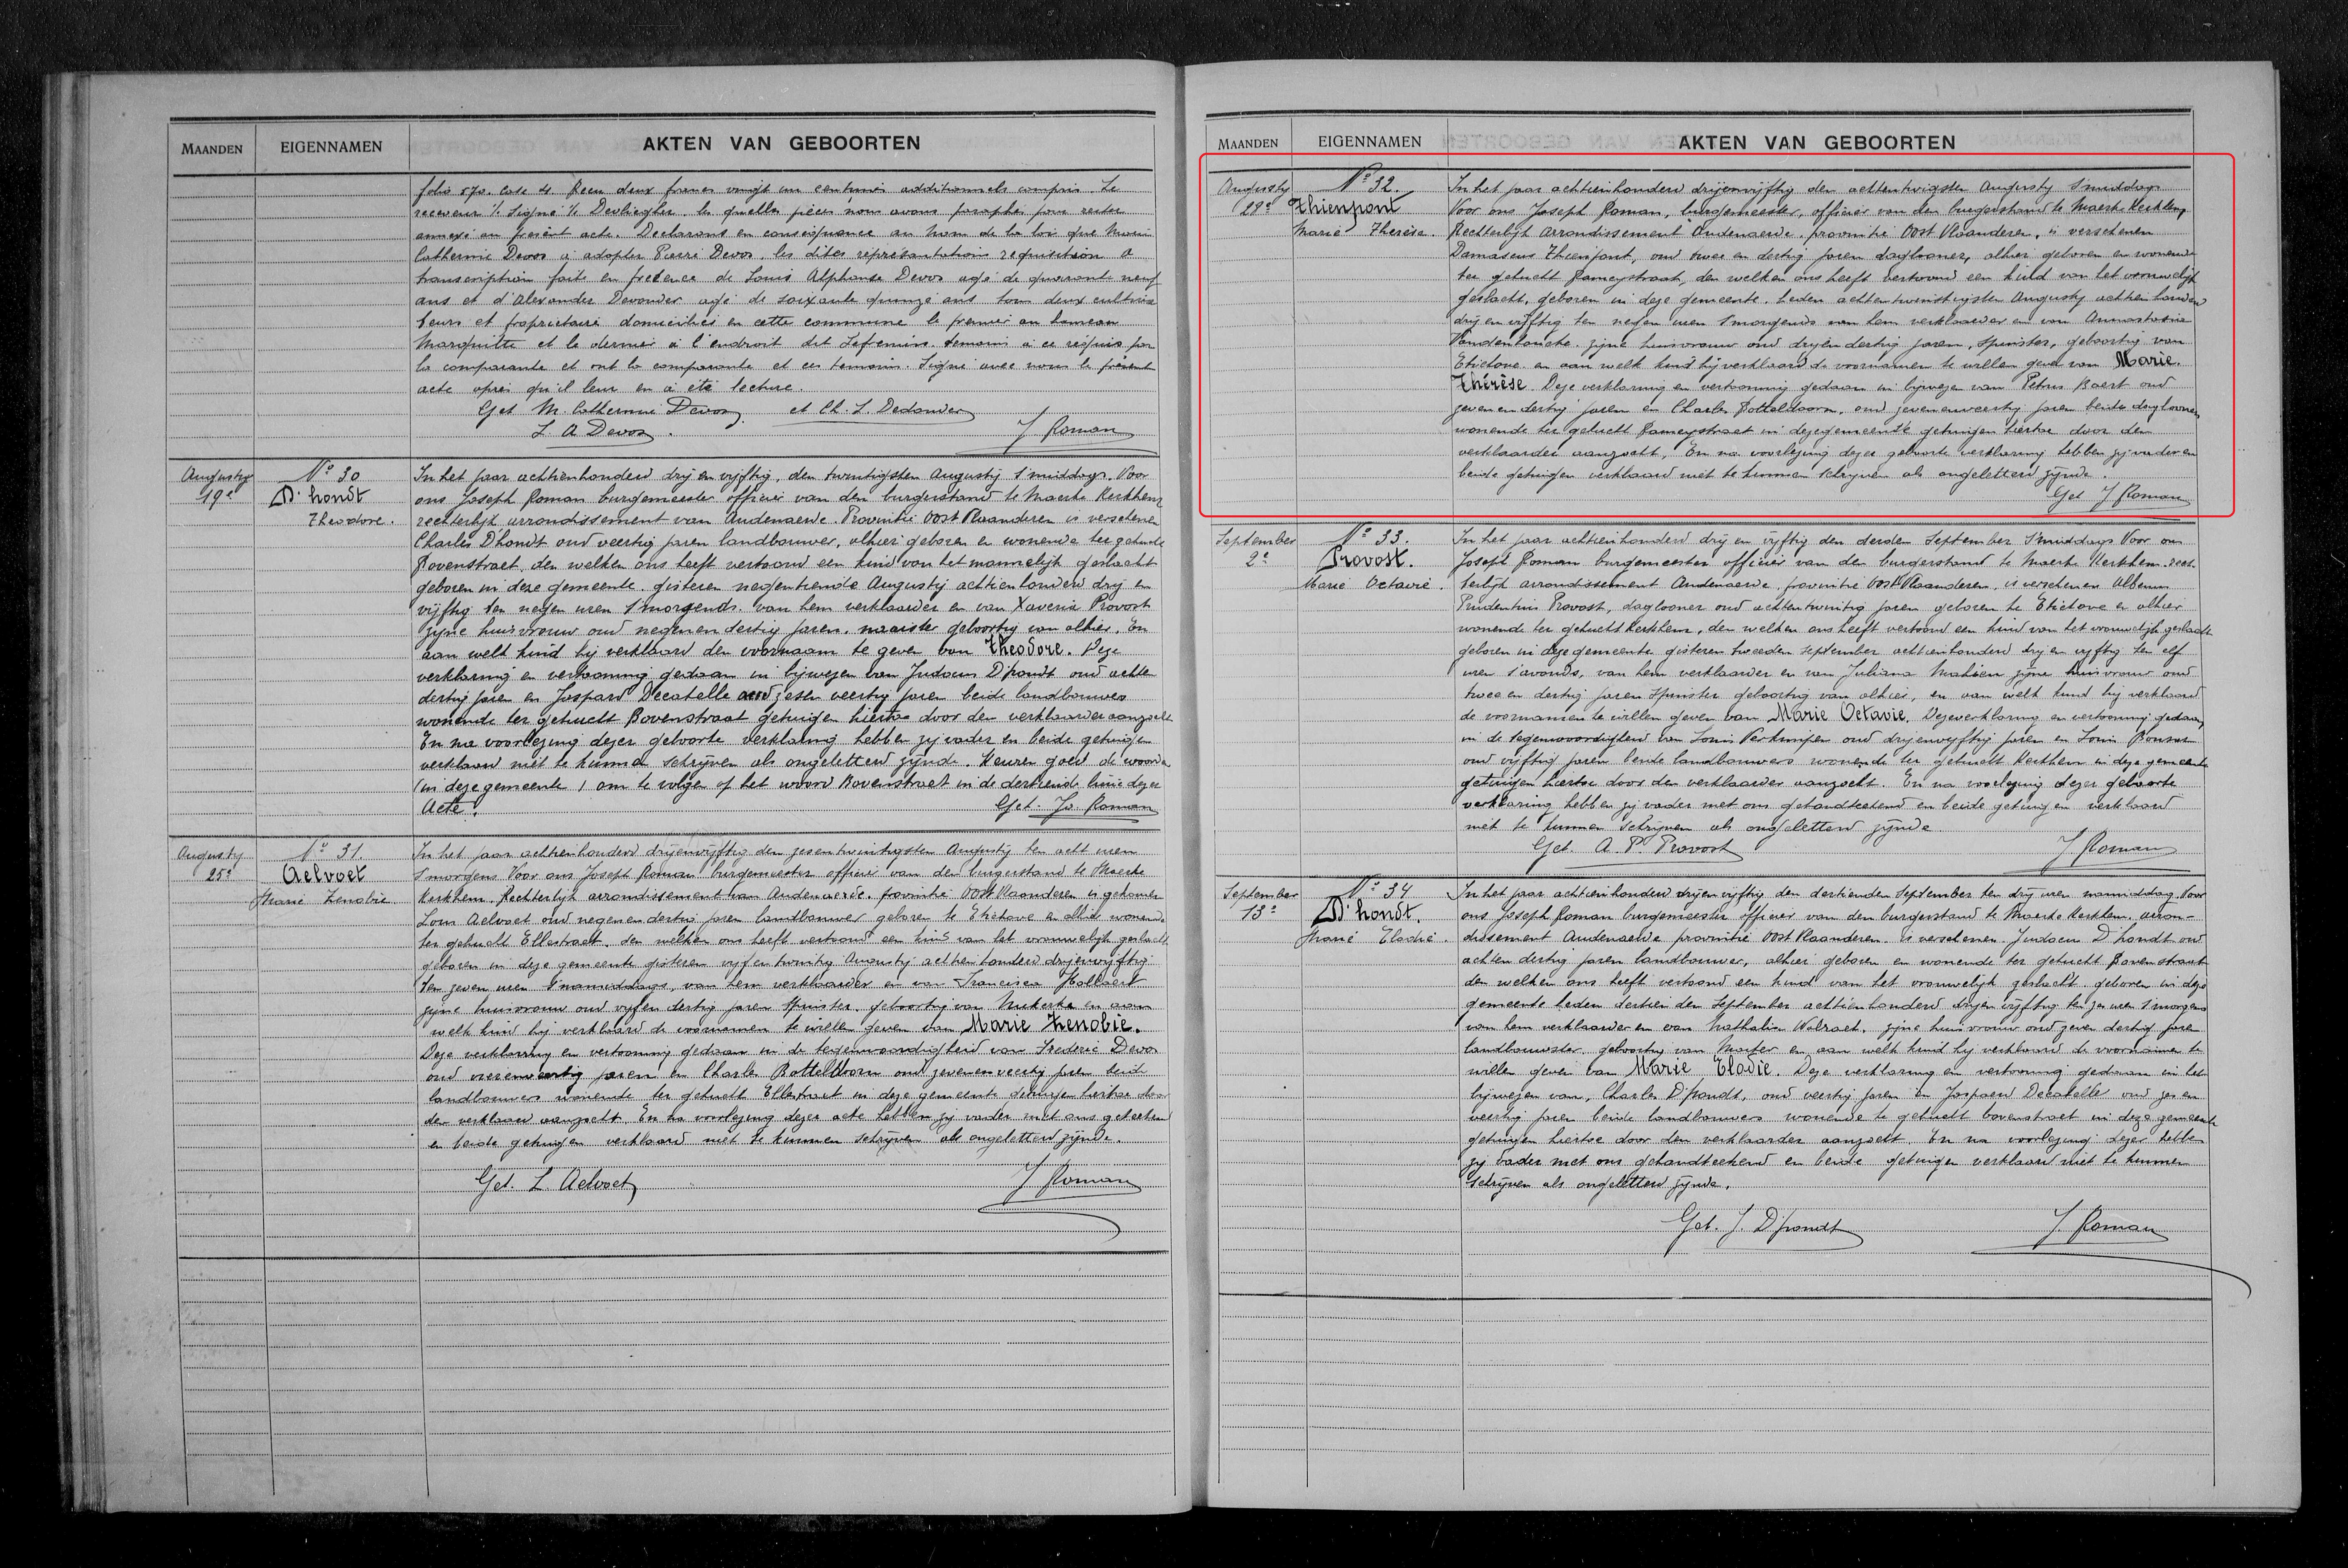 MAANDEN EIGENNAMEN AKTEN VAN GEBOORTEN
folio 570. case 4. Recu deux francs vingt un centimes additionnels compris. Le
receveur % Signé % Devlieghe. les quelles pièces nous avons paraphé pour rester
annexé au present acte. Declarons en conséquence au nom de la loi que Marie
Catherine Devos a adopter Pierre Devos. les dites représentations réquisition &
transcription faite en presence de Louis Alphonse Devos agé de quarante neuf
ans et d'Alexander Devonder agé de soixante quinze ans tous deux cultiva
teurs et propriétaire domiciliés en cette commune le premier au hameau
Marquitte et le dernier à l'endroit dit temoins à ce requis par
la comparante et ont la comparante et ces temoins. Signé avec nous le présent
acte apres qu'il leur en a été lecture.
Get M. Catherine Devos. et Ch. L. Dedonder
L. A Devos. J Roman
Augusty Nº 30
19e D'hondt
Theodore.
In het jaar achtienhonderd drij en vijftig, den twintigsten Augustij s'middags. Voor
ons Joseph Roman burgemeester officier van den burgerstand te Maerke Kerkhem
rechterlijk arrondissement van Audenaerde. Provintie Oost Vlaanderen is verschenen
Charles D'hondt oud veertig jaren landbouwer, alhier geboren en wonende ter gehucht
Bovenstraet, den welken ons heeft vertoond een kind van het mannelijk geslacht
geboren in deze gemeente. gisteren negentiende Augustij achtien honderd drij en
vijftig ten negen uren s'morgends. van hem verklaarder en van Xaveria Provost
zijne huisvrouw oud negenendertig jaren. naaister geboortig van alhier. En
aan welk kind hij verklaard den voornaam te geven van Theodore. Deze
verklaring en vertooning gedaan in bijwezen van Judocus D'hondt oud achten
dertig jaren en Jaspard Decabelle oud zesen veertig jaren beide landbouwers
wonende ter gehucht Bovenstraat getuigen hiertoe door den verklaarder aanzocht
En na voorlezing dezer geboorte verklaring hebben zij vader en beide getuigen
verklaard niet te kunnen schrijven als ongeletterd zijnde. Keuren goed de woorden
(in deze gemeente) om te volgen op het woord Bovenstraet in de dertiende linie dezer
Acte. Get. Jo. Roman
Augusty Nº 31.
25e Aelvoet
Marie Zenobie
In het jaar achtienhonderd drijenvijftig den zesentwintigsten Augustij ten acht uren
s'morgens Voor ons Joseph Roman burgemeester officier van den burgerstand te Maerke
Kerkhem. Rechterlijk arrondissement van Audenaerde. provintie Oost Vlaanderen is gekomen
Louis Aelvoet oud negenendertig jaren landbouwer geboren te Etichove en alhier wonende
ter gehucht Ellestraet. den welken ons heeft vertoond een kind van het vrouwelijk geslacht
geboren in deze gemeente gisteren vijfentwintig Augustij achtien honderd drijenvijftig
ten zeven uren s'namiddags van hem verklaarder en van Francisca Hallaert
zijne huisvrouw oud vijfendertig jaren spinster, geboortig van Nukerke en aan
welk kind hij verklaard de voornamen te willen geven van Marie Zenobie.
Deze verklaring en vertooning gedaan in de tegenwoordigheid van Frederic Devos
oud jaren en Charles Botteldoorn oud zevenenveertig jaren beide
landbouwers wonende ter gehucht Ellestraet in deze gemeente getuigen hiertoe door
den verklaard aanzocht. En na voorlezing dezer acte hebben zij vader met ons geteekend
en beide getuigen verklaard niet te kunnen schrijven als ongeletterd zijnde.
Get. L. Aelvoet J Roman
MAANDEN EIGENNAMEN AKTEN VAN GEBOORTEN
Augusty Nº 32.
29e Thienpont
Marie Therèse.
In het jaar achtienhonderd drijenvijftig den achtentwigsten Augusty s'middags
Voor ons Joseph Roman, burgemeester, officier van den burgerstand te Maerke Kerkhem
Rechterlijk Arrondissement Audenaerde. provintie Oost Vlaanderen, is verschenen
Damaseus Thienpont, oud twee en dertig jaren daglooner, alhier geboren en wonende
ter gehucht Rameystraat, den welken ons heeft vertoond een kind van het vrouwelijk
geslacht, geboren in deze gemeente. heden achtentwintigsten Augusty achtien honderd
drij en vijftig ten negen uren s'morgends van hem verklaarder en van Annastasia
Vandenhoucke. zijne huisvrouw oud drijendertig jaren, spinster, geboortig van
Etichove. en aan welk kind hij verklaard de voornamen te willen geven van Marie.
Thérèse. Deze verklaring en vertooning gedaan in bijwezen van Petrus Baert oud
zevenendertig jaren en Charles Botteldoorn, oud zevenenveertig jaren beide daglooners
wonende ter gehucht Rameystraet in deze gemeente getuigen hiertoe door den
verklaarder aanzocht. En na voorlezing dezer geboorte verklaring hebben zij vader en
beide getuigen verklaard niet te kunnen schrijven als ongeletterd zijnde.
Get J Roman
September Nº 33.
2e Provost.
Marie Octavie.
In het jaar achtienhonderd drij en vijftig den derden September s'middags Voor ons
Joseph Roman burgemeester officier van den burgerstand te Maerke Kerkhem. rech
terlijk arrondissement Audenaerde, provintie Oost Vlaanderen, is verschenen Albenus
Prudentius Provost, daglooner oud achtentwintig jaren geboren te Etichove en alhier
wonende ter gehucht Kerkhem, den welken ons heeft vertoond een kind van het vrouwelijk geslacht
geboren in deze gemeente gisteren tweeden september achtienhonderd drij en vijftig ten elf
uren s'avonds, van hem verklaarder en van Juliana Mahieu zijne huisvrouw oud
twee en dertig jaren spinster geboortig van alhier, en aan welk kind hij verklaard
de voornamen te willen geven van Marie Octavie. Deze verklaring en vertooning gedaan
in de tegenwoordigheid van Louis Verkruijsen oud drijenvijftig jaren en Louis
oud vijftig jaren beide landbouwers wonende ter gehucht Kerkhem in deze gemeente
getuigen hiertoe door den verklaarder aanzocht. En na voorlezing dezer geboorte
verklaring hebben zij vader met ons gehandteekend en beide getuigen verklaard
niet te kunnen schrijven als ongeletterd zijnde
Get. A. P. Provost J Roman
September Nº 34
13e D'hondt.
Marie Elodie.
In het jaar achtienhonderd drijenvijftig den dertienden September ten drij uren namiddag. Voor
ons Joseph Roman burgemeester officier van den burgerstand te Maerke Kerkhem, arron-
dissement Audenaerde provintie Oost Vlaanderen. is verschenen. Judocus D'hondt oud
achten dertig jaren landbouwer, alhier geboren en wonende ter gehucht Bovenstraat
den welken ons heeft vertoond een kind van het vrouwelijk geslacht. geboren in deze
gemeente heden dertienden September achttienhonderd drijen vijftig ten zes uren s'morgens
van hem verklaarder en van Nathalia Walraet. zijne huisvrouw oud zeven dertig jaren
landbouwster, geboortig van Mater en aan welk kind hij verklaard de voornamen te
willen geven van Marie Elodie. Deze verklaring en vertooning gedaan in het
bijwezen van, Charles D'hondt, oud veertig jaren en Jaspard Decabelle oud zes en
veertig jaren beide landbouwers wonende te gehucht bovenstraet in deze gemeente
getuigen hiertoe door den verklaarder aanzocht. En na voorlezing dezer hebben
zij vader met ons gehandteekend en beide getuigen verklaard niet te kunnen
schrijven als ongeletterd zijnde.
Get. J. D'hondt J. Roman